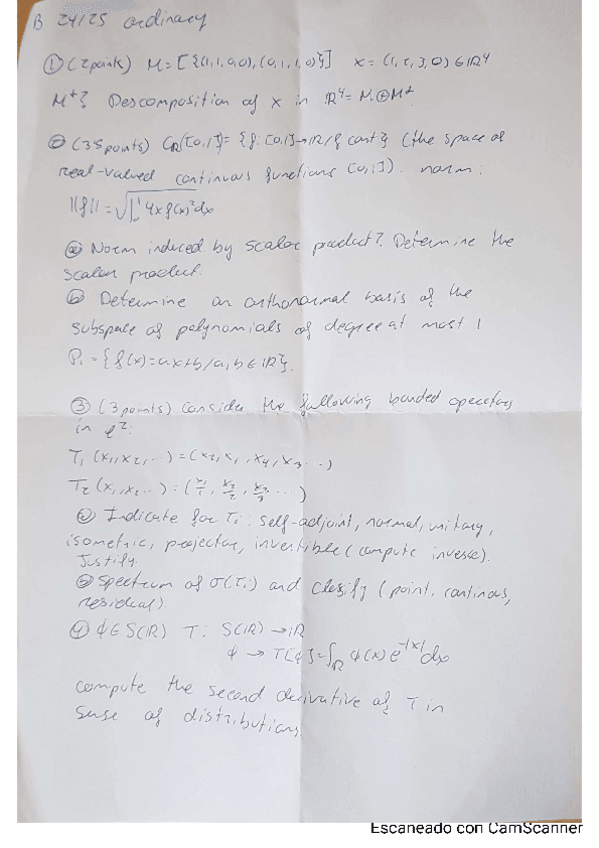 B 24/25 ordinary
① (2 points) M = [{(1,1,0,0), (0,1,1,0)}] x = (1,2,3,0) ∈ ℝ⁴
M⊥? Descomposition of x in ℝ⁴ = M⊕M⊥
② (3.5 points) C_ℝ([0,1]) = {f: [0,1]→ℝ / f cont} (the space of
real-valued continuous functions [0,1]). norm:
||f|| = √∫₀¹ 4x f(x)² dx
ⓐ Norm induced by scalar product? Determine the
scalar product.
ⓑ Determine an orthonormal basis of the
subspace of polynomials of degree at most 1
P₁ = {f(x) = ax+b / a,b ∈ ℝ}.
③ (3 points) Consider the following bounded operators
in ℓ²:
T₁ (x₁,x₂,...) = (x₂,x₁,x₄,x₃...)
T₂ (x₁,x₂...) = (x₁/1, x₂/2, x₃/3, ...)
ⓐ Indicate for Tᵢ: self-adjoint, normal, unitary,
isometric, projector, invertible (compute inverse).
Justify.
ⓑ Spectrum of σ(Tᵢ) and clasify (point, continous,
residual).
④ ϕ ∈ S(ℝ) T: S(ℝ) → ℝ
ϕ → T[ϕ] = ∫_ℝ ϕ(x) e^{-|x|} dx
compute the second derivative of T in
sense of distributions.
Escaneado con CamScanner